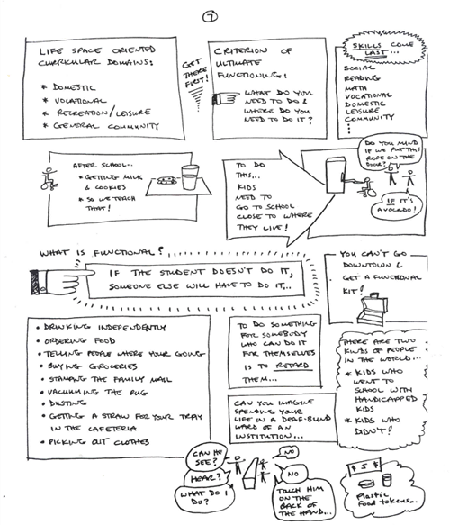 7
LIFE SPACE ORIENTED
CURRICULAR DOMAINS:
* DOMESTIC
* VOCATIONAL
* RECREATION/LEISURE
* GENERAL COMMUNITY
GET
THERE
FIRST!
CRITERION OF
ULTIMATE
FUNCTIONING:
WHAT DO YOU
NEED TO DO &
WHERE DO YOU
NEED TO DO IT?
SKILLS COME
LAST...
SOCIAL
READING
MATH
VOCATIONAL
DOMESTIC
LEISURE
COMMUNITY
AFTER SCHOOL..
* GETTING MILK
& COOKIES
* SO WE TEACH
THAT!
TO DO
THIS...
KIDS
NEED TO
GO TO SCHOOL
CLOSE TO WHERE
THEY LIVE!
DO YOU MIND
IF WE PUT THIS
ROPE ON THE
DOOR?
IF IT'S
AVOCADO!
WHAT IS FUNCTIONAL?
IF THE STUDENT DOESN'T DO IT,
SOMEONE ELSE WILL HAVE TO DO IT...
YOU CAN'T GO
DOWNTOWN &
GET A FUNCTIONAL
KIT!
• DRINKING INDEPENDENTLY
• ORDERING FOOD
• TELLING PEOPLE WHERE YOUR GOING
• BUYING GROCERIES
• STAMPING THE FAMILY MAIL
• VACUUMING THE RUG
• DUSTING
• GETTING A STRAW FOR YOUR TRAY
IN THE CAFETERIA
• PICKING OUT CLOTHES
TO DO SOMETHING
FOR SOMEBODY
WHO CAN DO IT
FOR THEMSELVES
IS TO RETARD
THEM...
CAN YOU IMAGINE
SPENDING YOUR
LIFE IN A DEAF-BLIND
WARD OF AN
INSTITUTION...
THERE ARE TWO
KINDS OF PEOPLE
IN THE WORLD...
* KIDS WHO
WENT TO
SCHOOL WITH
HANDICAPPED
KIDS
* KIDS WHO
DIDN'T!
CAN HE
SEE?
HEAR?
WHAT DO I
DO?
NO
NO
TOUCH HIM
ON THE
BACK OF
THE HAND...
FOOD TOKENS...